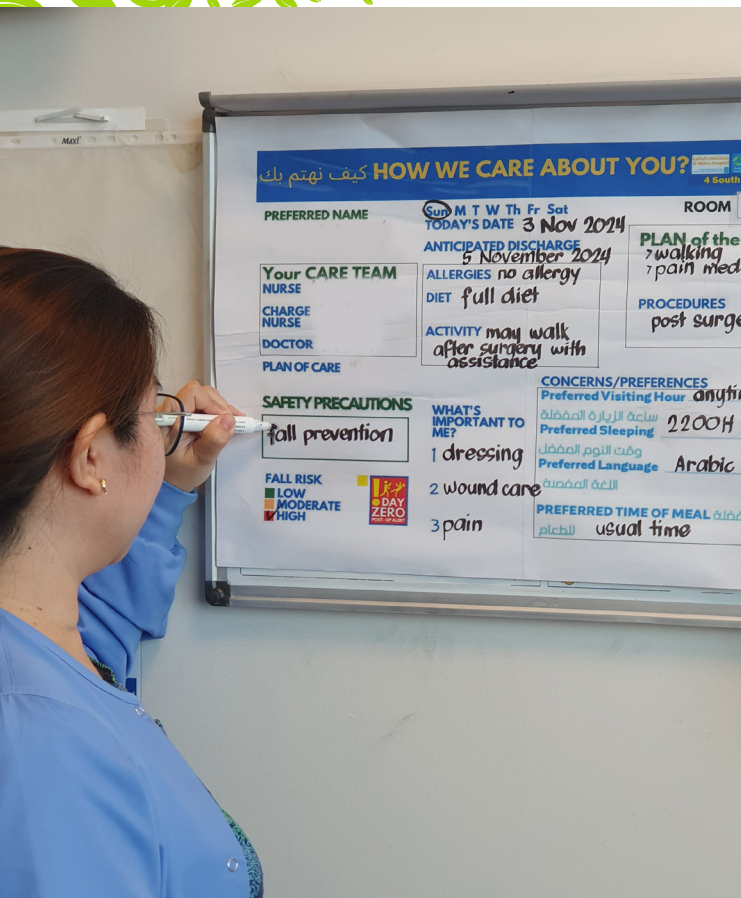 Maxi
كيف نهتم بك HOW WE CARE ABOUT YOU?
4 South
PREFERRED NAME
Sun M T W Th Fr Sat
TODAY'S DATE 3 Nov 2024
ANTICIPATED DISCHARGE
5 November 2024
ROOM
Your CARE TEAM
NURSE
CHARGE
NURSE
DOCTOR
PLAN OF CARE
ALLERGIES no allergy
DIET full diet
ACTIVITY may walk
after surgery with
assistance
PLAN of the
walking
pain med
PROCEDURES
post surge
SAFETY PRECAUTIONS
fall prevention
FALL RISK
LOW
MODERATE
HIGH
! DAY
ZERO
POST-OP ALERT
WHAT'S
IMPORTANT TO
ME?
1 dressing
2 wound care
3 pain
CONCERNS/PREFERENCES
Preferred Visiting Hour anyti
ساعة الزيارة المفضلة
Preferred Sleeping 2200H
وقت النوم المفضل
Preferred Language Arabic
اللغة المفضلة
PREFERRED TIME OF MEAL
للطعام usual time